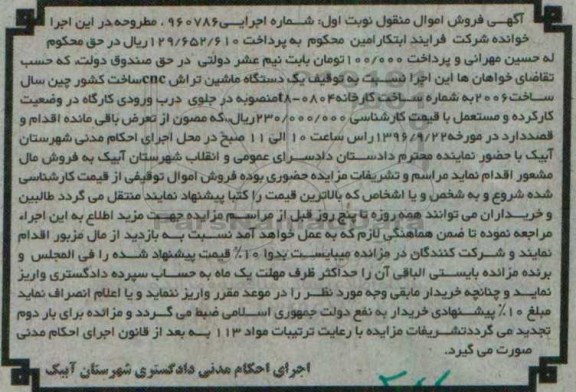 آگهی فروش اموال منقول نوبت اول: شماره اجرایی۹۶۰۷۸۶ ، مطروحه در این اجرا
خوانده شرکت فرایند ابتکارامین محکوم به پرداخت ۱۲۹/۶۵۲/۶۱۰ریال در حق محکوم
له حسین مهرانی و پرداخت ۱۰۰/۰۰۰تومان بابت نیم عشر دولتی در حق صندوق دولت، که حسب
تقاضای خواهان ها این اجرا نسبت به توقیف یک دستگاه ماشین تراش cncساخت کشور چین سال
ساخت۲۰۰۶به شماره ساخت کارخانه۰۸۰۴-۱۸منصوبه در جلوی درب ورودی کارگاه در وضعیت
کارکرده و مستعمل با قیمت کارشناسی ۲۳۰/۰۰۰/۰۰۰ریال،که مصون از تعرض باقی مانده اقدام و
قصددارد در مورخه۱۳۹۶/۹/۲۲راس ساعت ۱۰ الی ۱۱ صبح در محل اجرای احکام مدنی شهرستان
آبیک با حضور نماینده محترم دادستان دادسرای عمومی و انقلاب شهرستان آبیک به فروش مال
مشعور اقدام نماید مراسم و تشریفات مزایده حضوری بوده فروش اموال توقیفی از قیمت کارشناسی
شده شروع و به شخص و یا اشخاص که بالاترین قیمت را کتبا پیشنهاد نمایند منتقل می گردد طالبین
و خریداران می توانند همه روزه تا پنج روز قبل از مراسم مزایده جهت مزید اطلاع به این اجراء
مراجعه نموده تا ضمن هماهنگی لازم که به عمل خواهد آمد نسبت به بازدید از مال مزبور اقدام
نمایند و شرکت کنندگان در مزانده میبایست بدوا ۱۰٪ قیمت پیشنهاد شده را فی المجلس و
برنده مزانده بایستی الباقی آن را حداکثر ظرف مهلت یک ماه به حساب سپرده دادگستری واریز
نماید و چنانچه خریدار مابقی وجه مورد نظر را در موعد مقرر واریز ننماید و یا اعلام انصراف نماید
مبلغ ۱۰٪ پیشنهادی خریدار به نفع دولت جمهوری اسلامی ضبط می گردد و مزانده برای بار دوم
تجدید می گرددتشریفات مزایده با رعایت ترتیبات مواد ۱۱۳ به بعد از قانون اجرای احکام مدنی
صورت می گیرد.
اجرای احکام مدنی دادگستری شهرستان آبیک